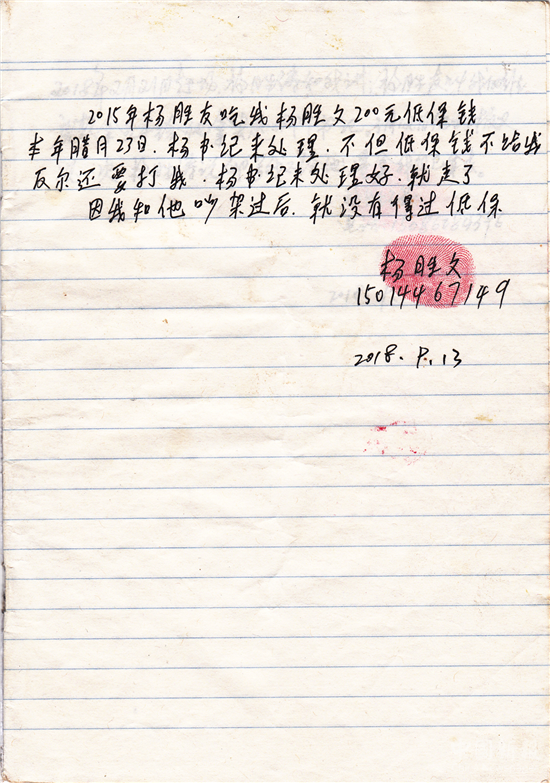 2015年杨胜友吃我杨胜文200元低保钱
本年腊月23日.杨书纪来处理.不但低保钱不给我
反尔还要打我.杨书纪来处理好.就走了
因我和他吵架过后.就没有得过低保
杨胜文
15014467149
2018.8.13